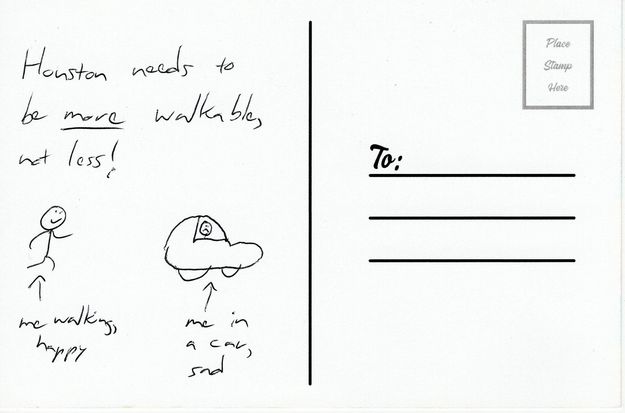 Houston needs to
be more walkable,
not less!
me walking,
happy
me in
a car,
sad
Place
Stamp
Here
To: